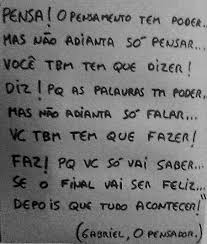 PENSA! O PENSAMENTO TEM PODER...
MAS NÃO ADIANTA SÓ PENSAR...
VOCÊ TBM TEM QUE DIZER!
DIZ! PQ AS PALAVRAS TM PODER...
MAS NÃO ADIANTA SÓ FALAR...
VC TBM TEM QUE FAZER!
FAZ! PQ VC SÓ VAI SABER...
SE O FINAL VAI SER FELIZ...
DEPOIS QUE TUDO ACONTECER!"
(GABRIEL, O PENSADOR.)